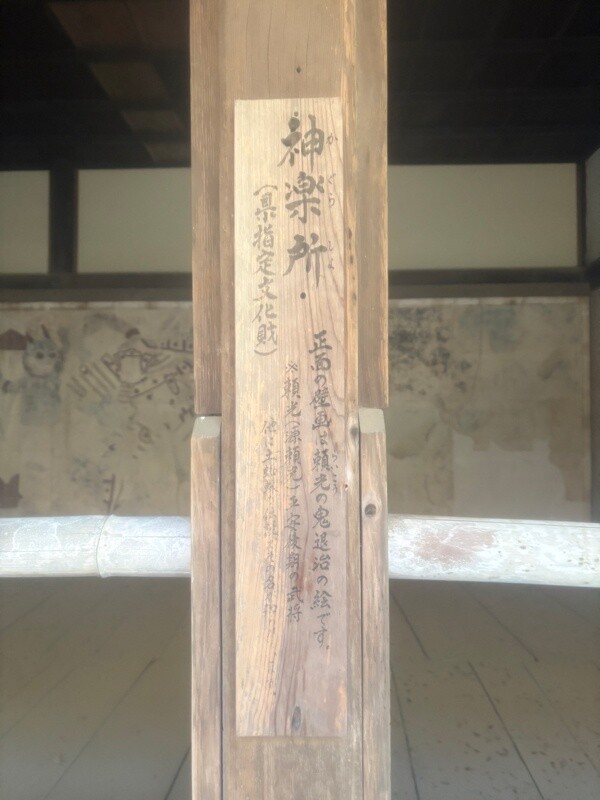 神楽所
かぐらしょ
(県指定文化財)
正面の壁画は頼光の鬼退治の絵です。
らいこう
※頼光(源頼光)平安後期の武将